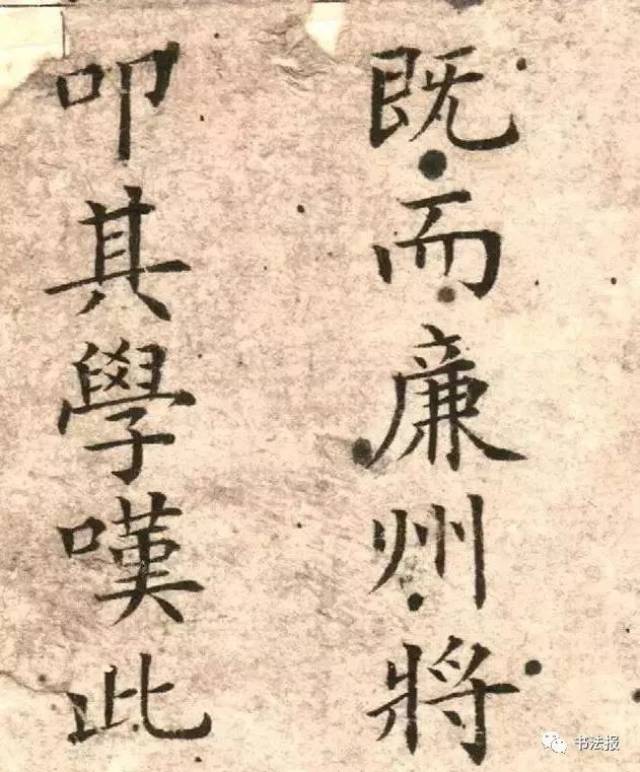 既而廉州將
叩其學嘆此
书法报